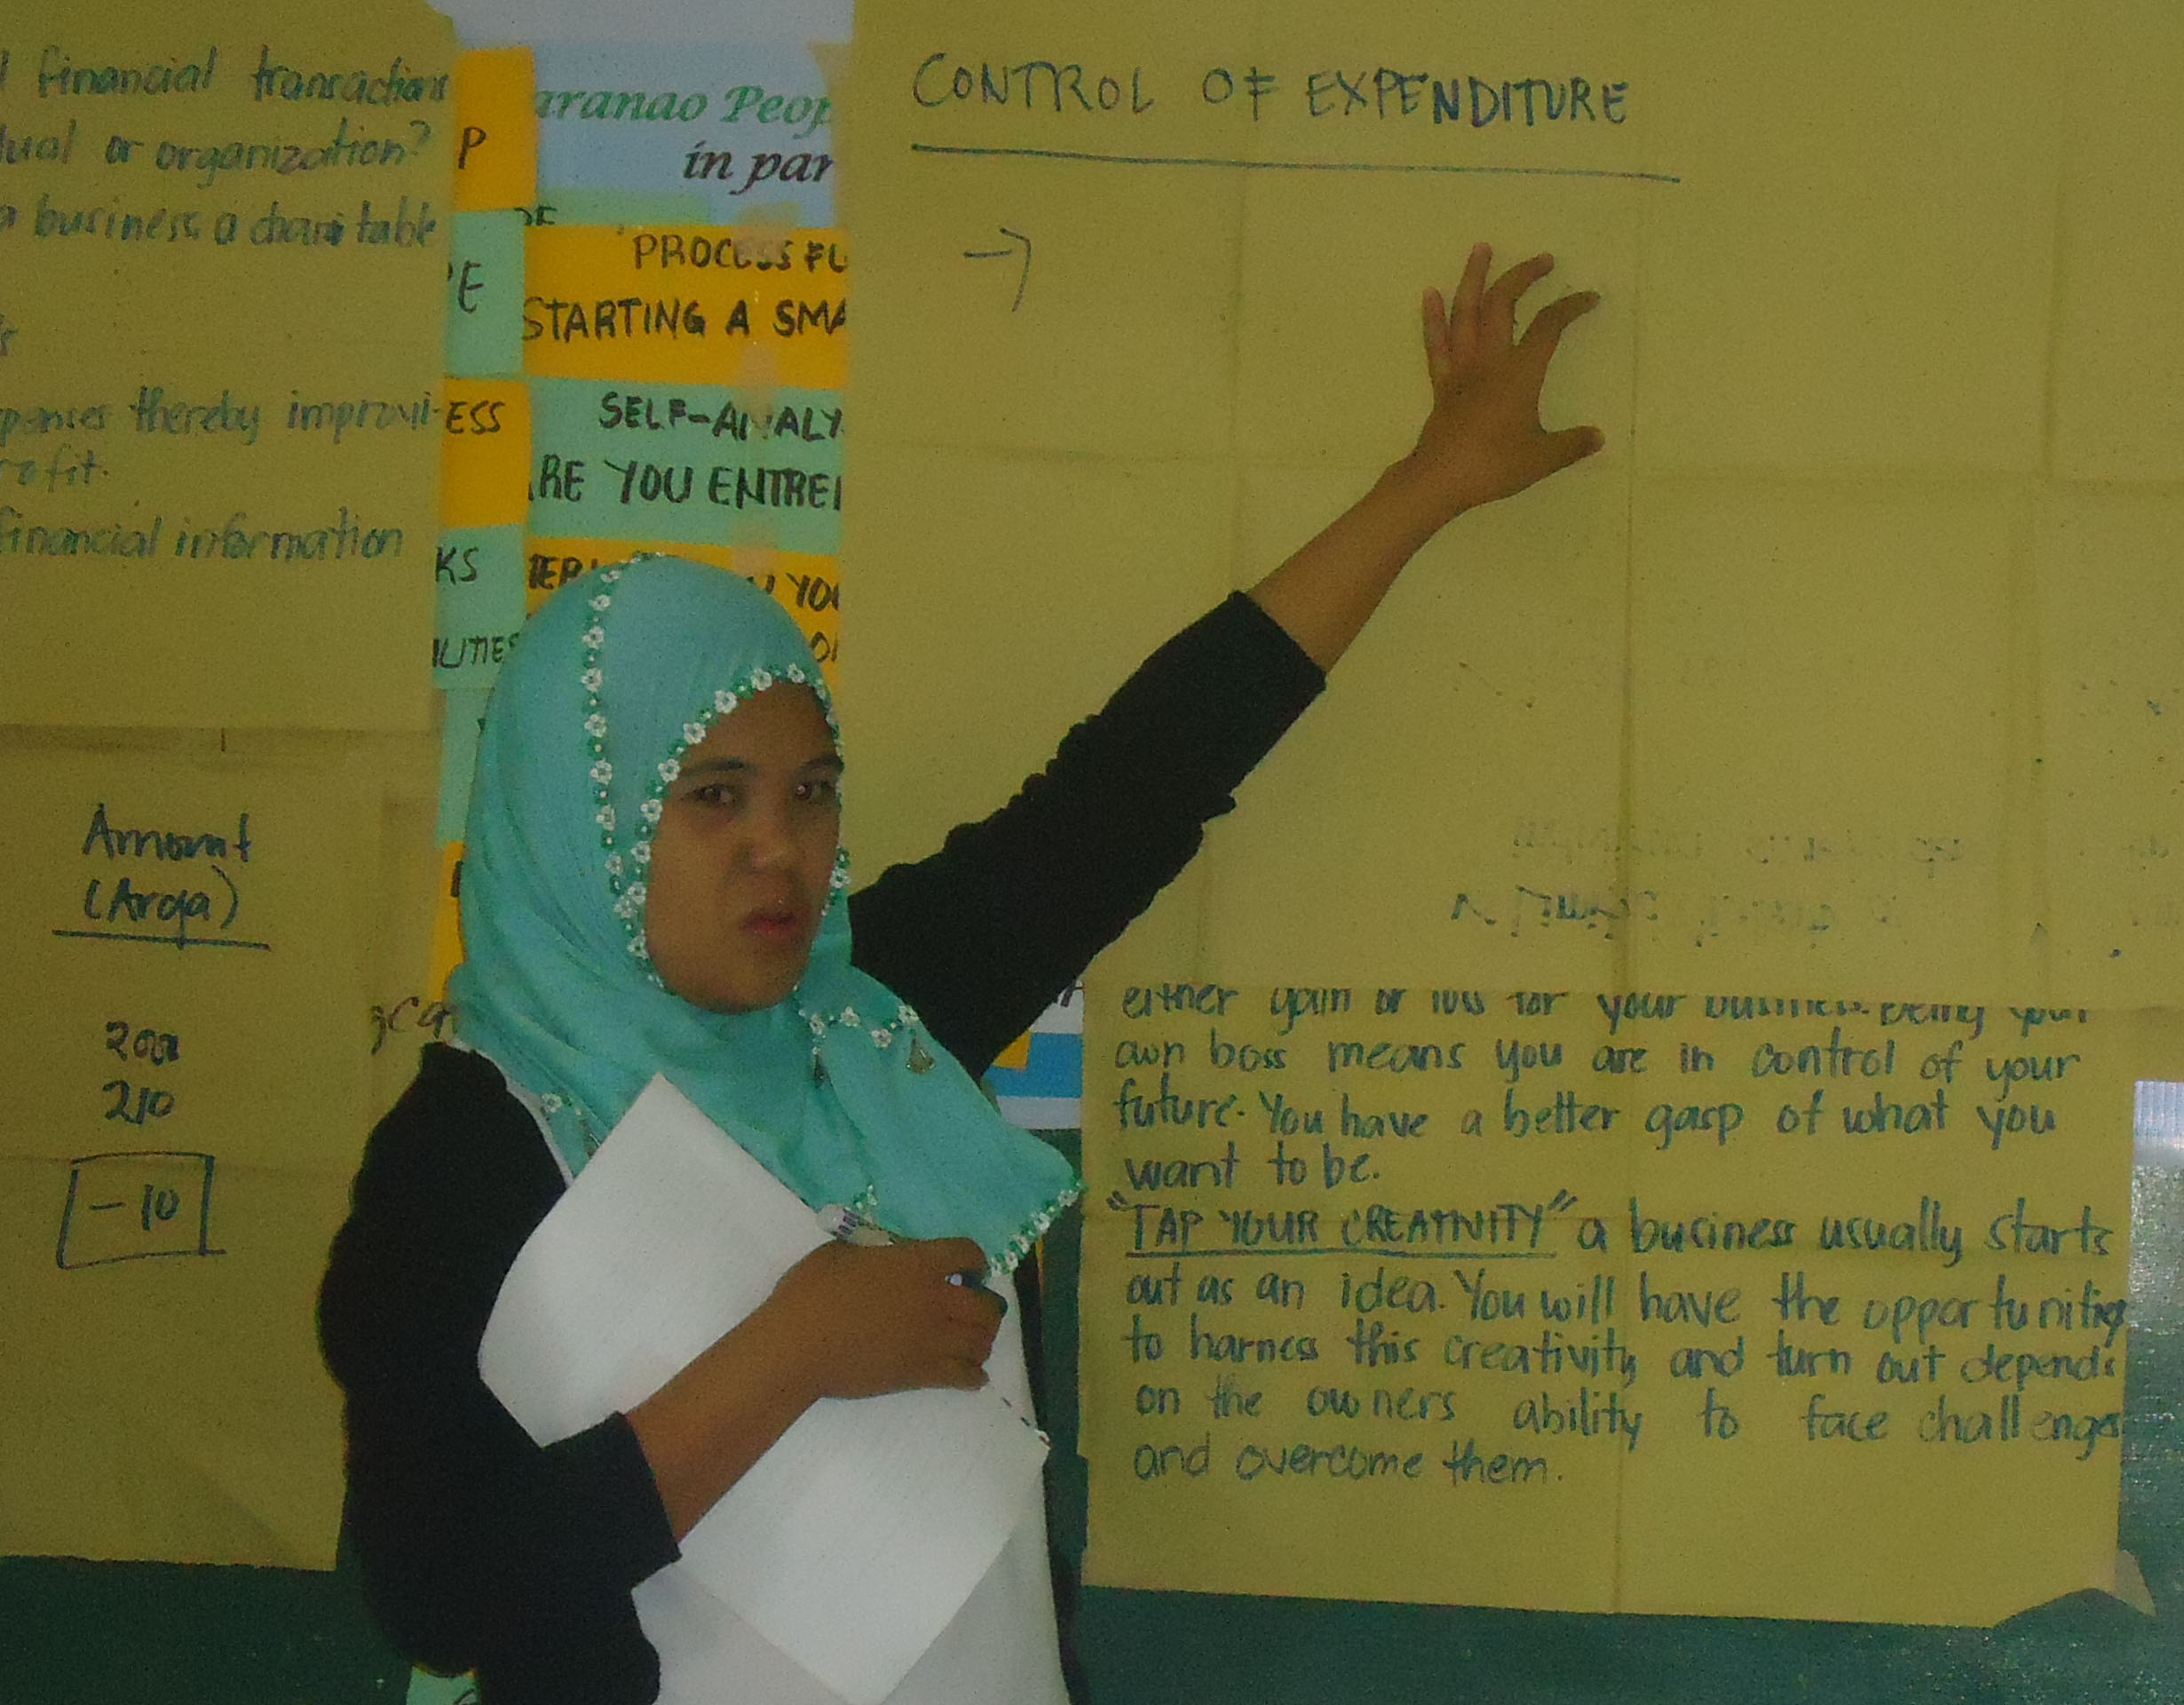 financial transactions
or organization?
a business, a charitable
thereby improvi-
financial information
Amount
(Arga)
200
210
-10
P
ESS
KS
in par
PROCESS FU
STARTING A SMA
SELF-ANALY
RE YOU ENTRE
CONTROL OF EXPENDITURE
→
either gain or loss for your business. Being your
own boss means you are in control of your
future. You have a better gasp of what you
want to be.
"TAP YOUR CREATIVITY" a business usually starts
out as an idea. You will have the opportunities
to harness this creativity and turn out depends
on the owners ability to face challenges
and overcome them.